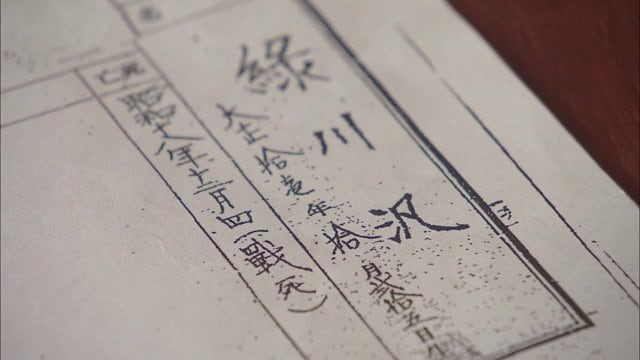 名
綠川 汎
大正拾壱年拾月弐拾五日
死亡
昭和十八年十二月四(戰死)